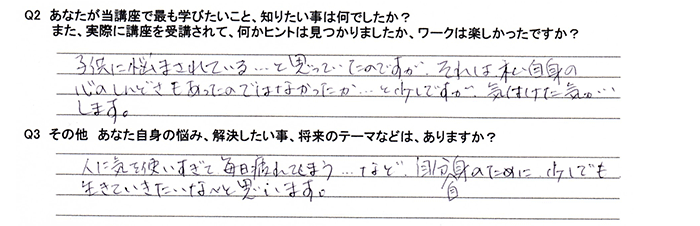 Q2 あなたが当講座で最も学びたいこと、知りたい事は何でしたか？
また、実際に講座を受講されて、何かヒントは見つかりましたか、ワークは楽しかったですか？
子供に悩まされている…と思っていたのですが、それは私自身の
心のしんどさもあったのではなかったか…と少しですが、気付けた気が…
します。
Q3 その他 あなた自身の悩み、解決したい事、将来のテーマなどは、ありますか？
人に気を使いすぎて毎日疲れてしまう…など、自分自身のために 少しでも
生きていきたいな〜と思います。